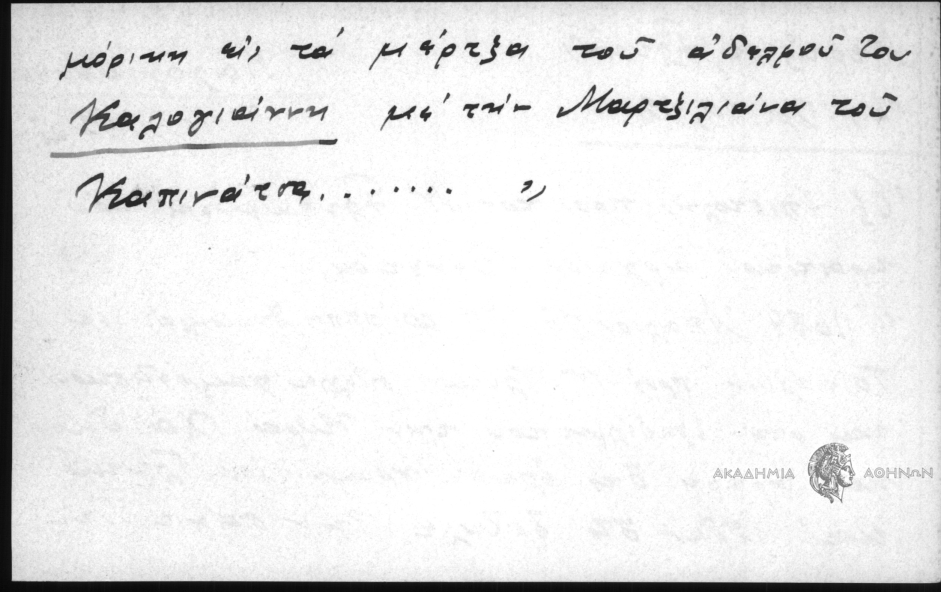 μόρικη εἰς τά μέρτζα τοῦ ἀδελφοῦ του
Καλογιαίννη μέ τήν Μαρτζιλιάνα τοῦ
Καπινάτσα........ "
ΑΚΑΔΗΜΙΑ ΑΘΗΝΩΝ